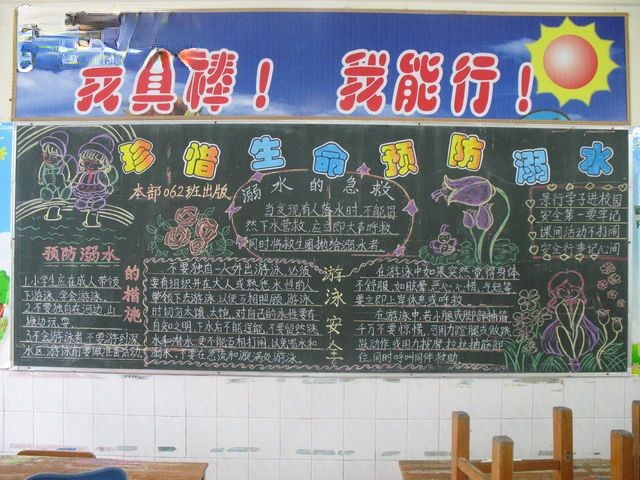 我真棒！ 我能行！
珍惜生命预防溺水
本部062班出版
预防溺水
的措施
1.小学生应在成人带领
下游泳、学会游泳。
2.不要独自在河边、山
塘边玩耍。
3.不会游泳者不要游到深
水区,游泳前要做准备活动。
溺水的急救
当发现有人落水时,不能冒
然下水营救,应立即大声呼救
同时将救生圈抛给溺水者。
不要独自一人外出游泳,必须
要有组织并在大人或熟悉水性的人
带领下去游泳,以便互相照顾,游泳
时切勿太饿、太饱,对自己的水性要有
自知之明,下水后不能逞能,不要贸然跳
水和潜水,更不能互相打闹,以免喝水和
溺水,不要在急流和漩涡处游泳。
游泳安全
在游泳中如果突然觉得身体
不舒服,如眩晕、恶心、心慌、气短等
要立即上岸休息或呼救。
在游泳中,若小腿或脚部抽筋
千万不要惊慌,可用力蹬腿或做跳
跃动作,或用力按摩、拉扯抽筋部
位,同时呼叫同伴救助。
景行学子进校园
安全第一要牢记
课间活动不打闹
安全行事记心间